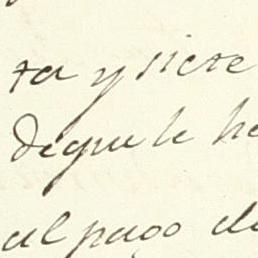 ta y siete
de que le he
al pago de